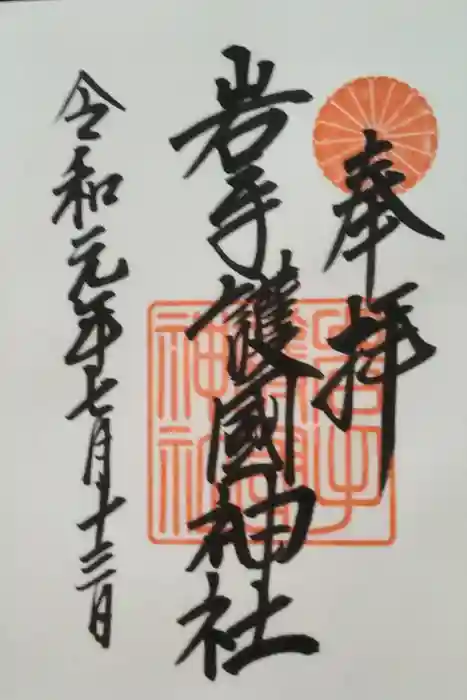 奉拝
岩手護國神社
令和元年七月十三日
岩手
護國
神社